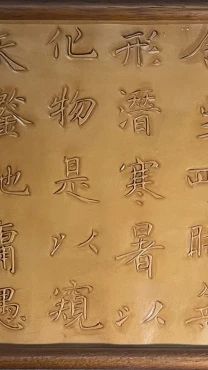 含生四時無
形潛寒暑以
化物是以窺
天鑒地庸愚